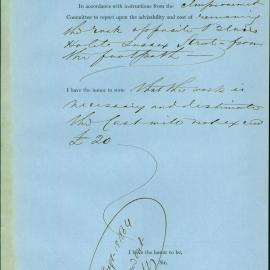 In accordance with instructions from the Improvement
Committee to report upon the advisability and cost of removing
the rock opposite
Hotel Sussex Street from
the footpath
I have the honor to state, that the work is
necessary and
the cost will not exceed
£ 20
I have the honor to be,
Sir,